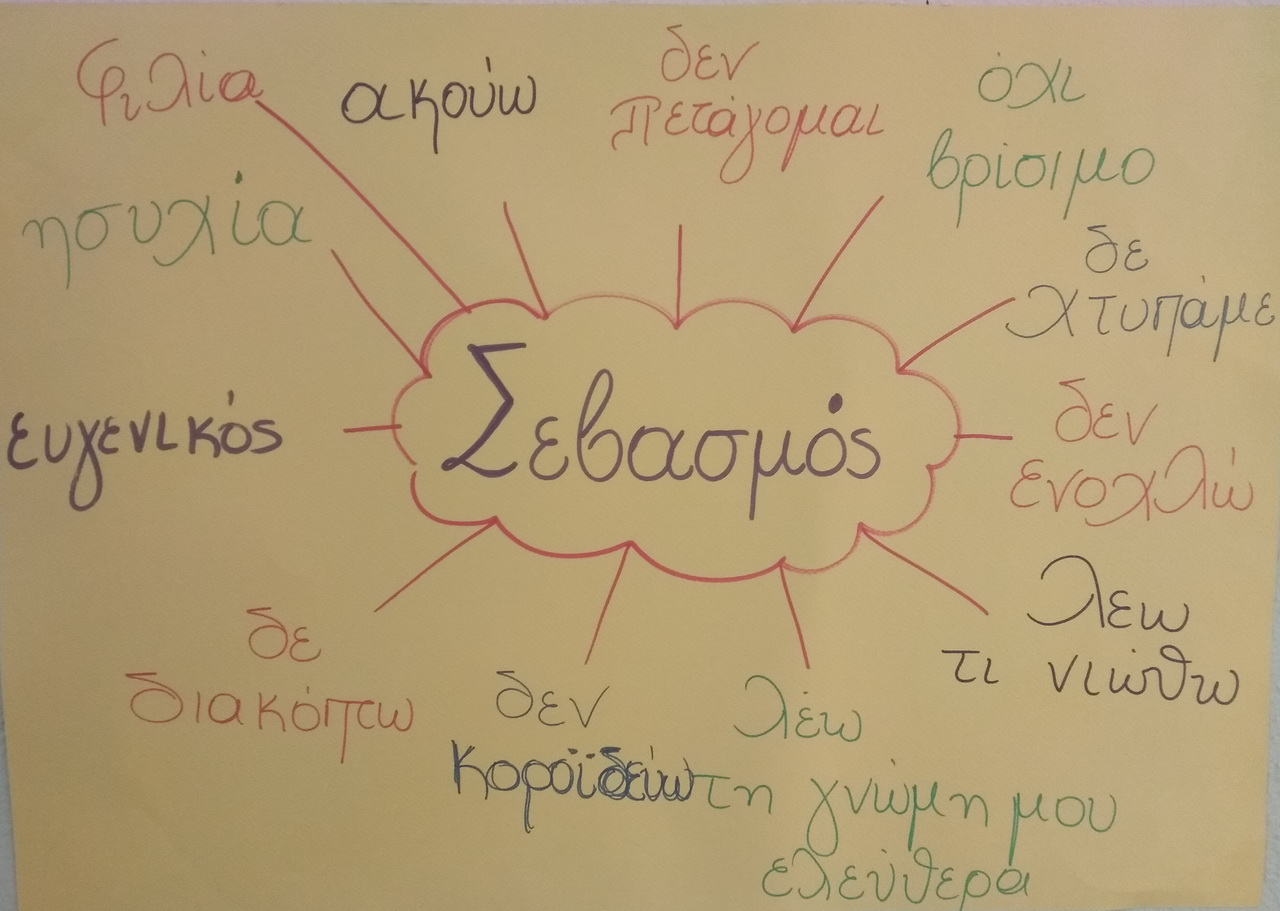 φιλία
ακούω
δεν
πετάγομαι
όχι
βρίσιμο
ησυχία
δε
χτυπάμε
ευγενικός
Σεβασμός
δεν
ενοχλώ
λεω
τι νιώθω
δε
διακόπτω
δεν
κοροϊδεύω
λέω
τη γνώμη μου
ελεύθερα